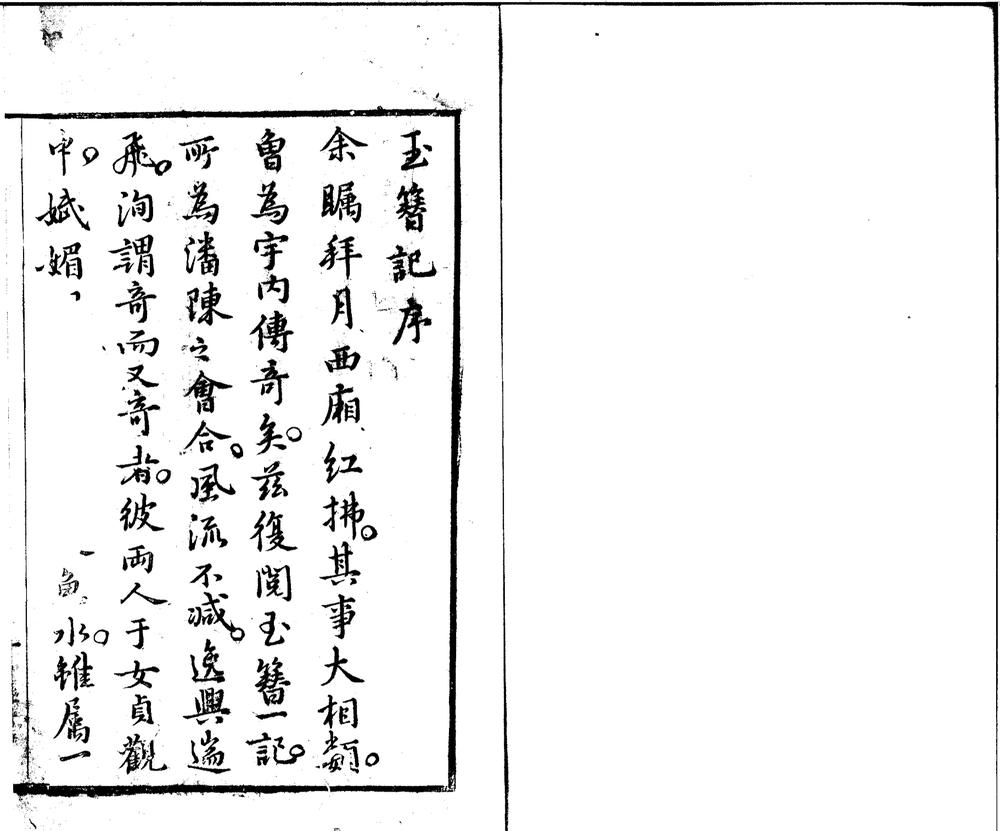 玉簪記序
余矚拜月西廂紅拂。其事大相類。
曾為宇內傳奇矣。茲復閱玉簪一記。
所為潘陳之會合。風流不減。逸興遄
飛。洵謂奇而又奇者。彼両人于女貞觀
中。娬媚、一魚水。雖属一